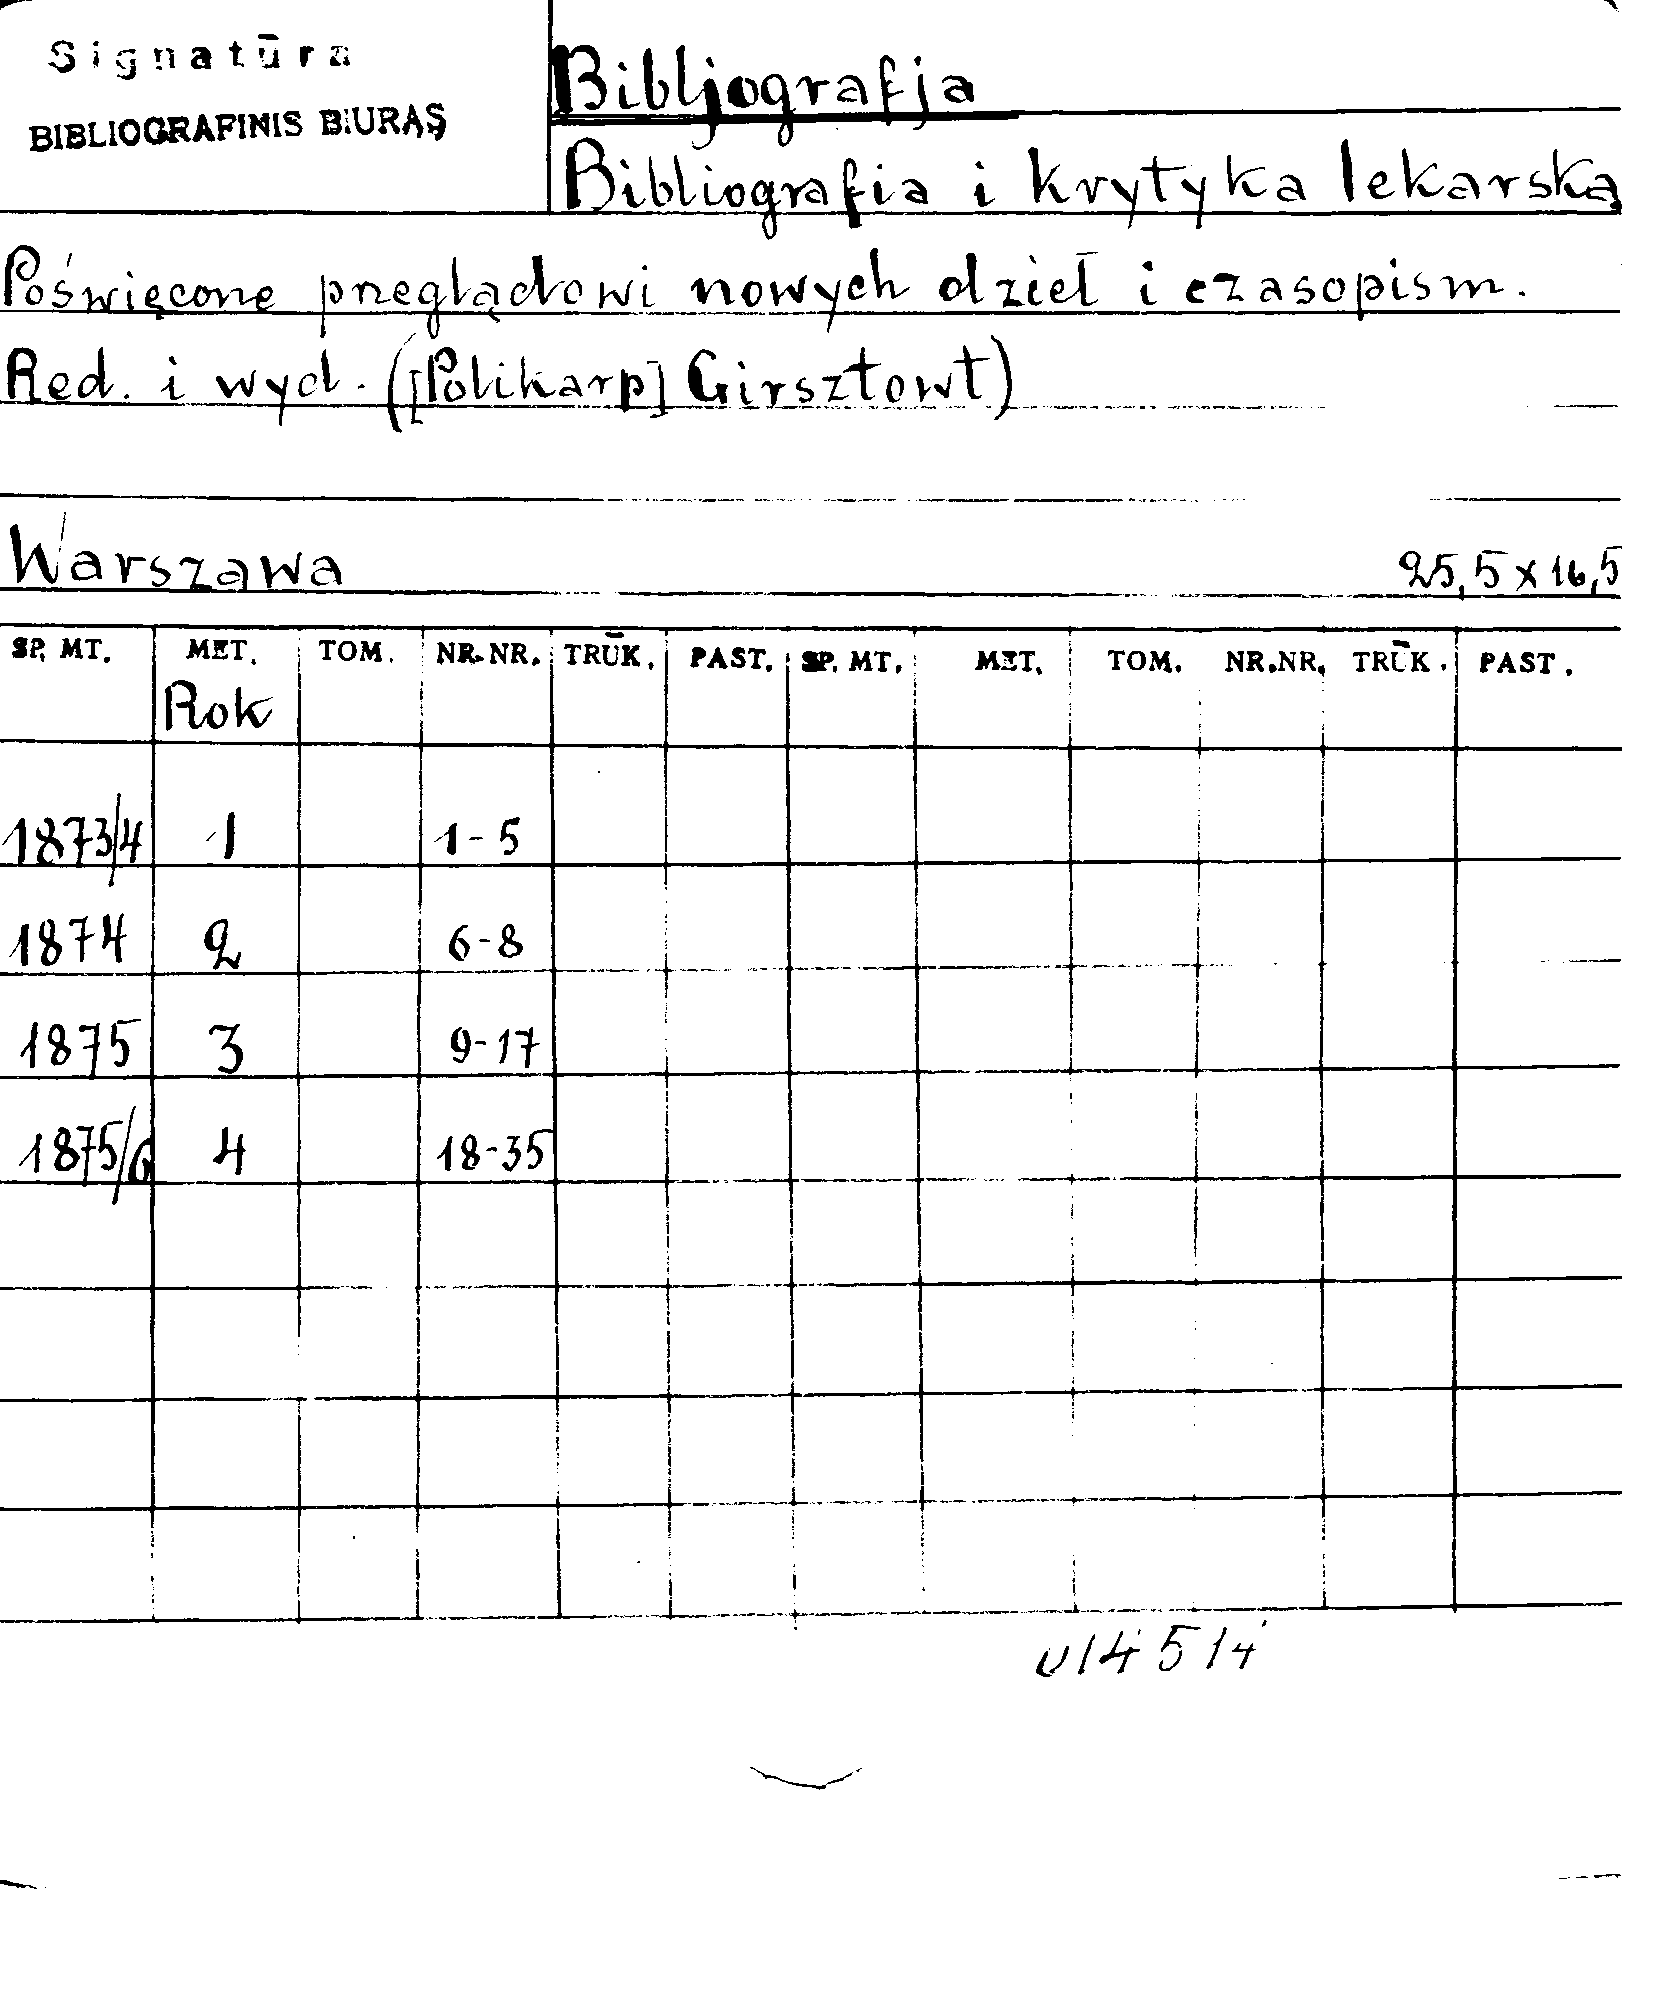 Signatūra
BIBLIOGRAFINIS BIURAS
Bibljografja
Bibliografia i krytyka lekarska
Poświęcone pneglądowi nowych dzieł i czasopism.
Red. i wyd. ([Polikarp] Girsztowt)
Warszawa 25,5 x 16,5
SP. MT. MET. TOM. NR.NR. TRŪK. PAST. SP. MT. MET. TOM. NR.NR. TRŪK. PAST.
Rok
1873/4 1 1-5
1874 2 6-8
1875 3 9-17
1875/6 4 18-35
014514